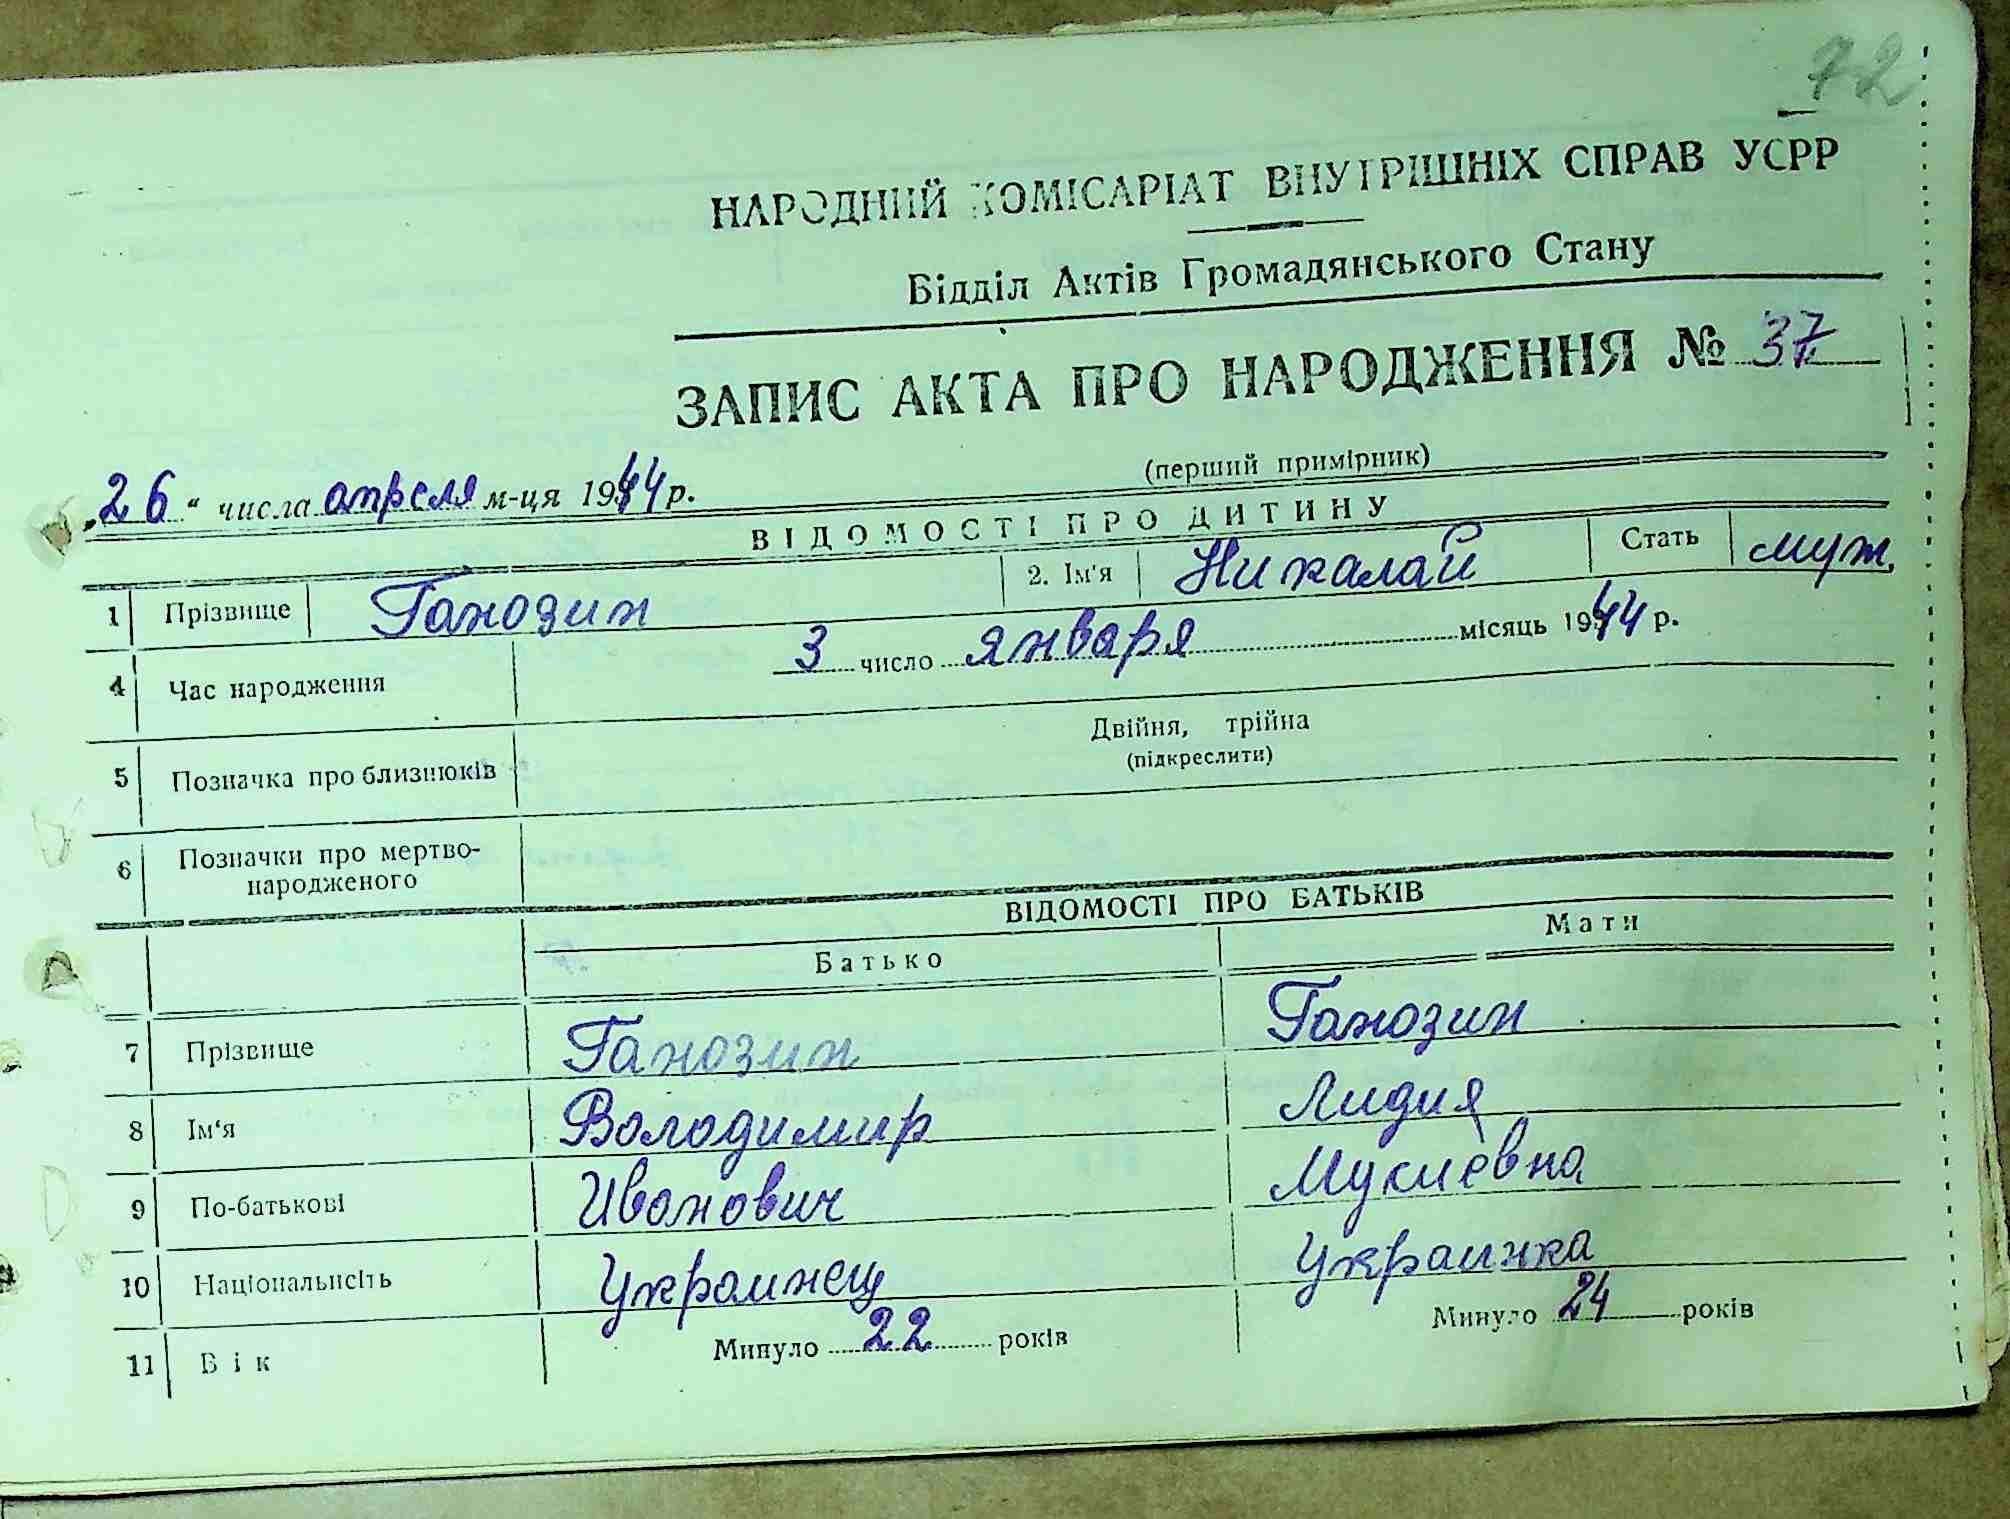 72
НАРОДНИЙ КОМІСАРІАТ ВНУТРІШНІХ СПРАВ УСРР
Відділ Актів Громадянського Стану
ЗАПИС АКТА ПРО НАРОДЖЕННЯ № 37
(перший примірник)
„26“ числа апреля м-ця 1944 р.
ВІДОМОСТІ ПРО ДИТИНУ
1 Прізвище Ганозин 2. Ім'я Николай Стать муж.
4 Час народження 3 число января місяць 1944 р.
5 Позначка про близнюків Двійня, трійна
(підкреслити)
6 Позначки про мертво-
народженого
ВІДОМОСТІ ПРО БАТЬКІВ
Батько Мати
7 Прізвище Ганозин Ганозин
8 Ім‘я Володимир Лидия
9 По-батькові Иванович Мукиевна
10 Національність Украинец Украинка
11 Вік Минуло 22 років Минуло 24 років